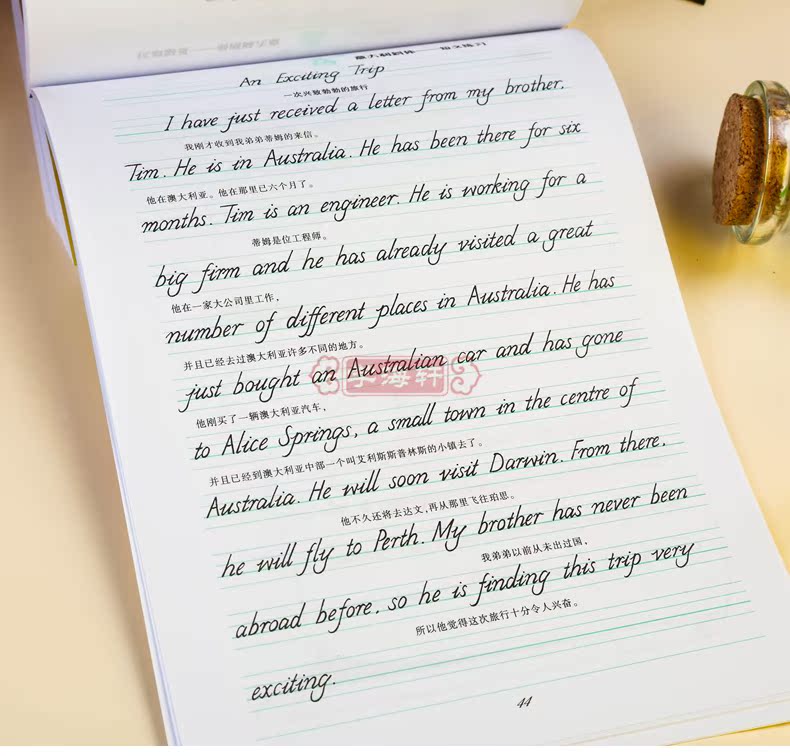 An Exciting Trip
一次兴致勃勃的旅行
I have just received a letter from my brother,
我刚才收到我弟弟蒂姆的来信。
Tim. He is in Australia. He has been there for six
他在澳大利亚。他在那里已六个月了。
months. Tim is an engineer. He is working for a
蒂姆是位工程师。
big firm and he has already visited a great
他在一家大公司里工作,
number of different places in Australia. He has
并且已经去过澳大利亚许多不同的地方。
just bought an Australian car and has gone
字海轩
他刚买了一辆澳大利亚汽车,
to Alice Springs, a small town in the centre of
并且已经到澳大利亚中部一个叫艾利斯斯普林斯的小镇去了。
Australia. He will soon visit Darwin. From there,
他不久还将去达文,再从那里飞往珀思。
he will fly to Perth. My brother has never been
我弟弟以前从未出过国,
abroad before, so he is finding this trip very
所以他觉得这次旅行十分令人兴奋。
exciting.
44